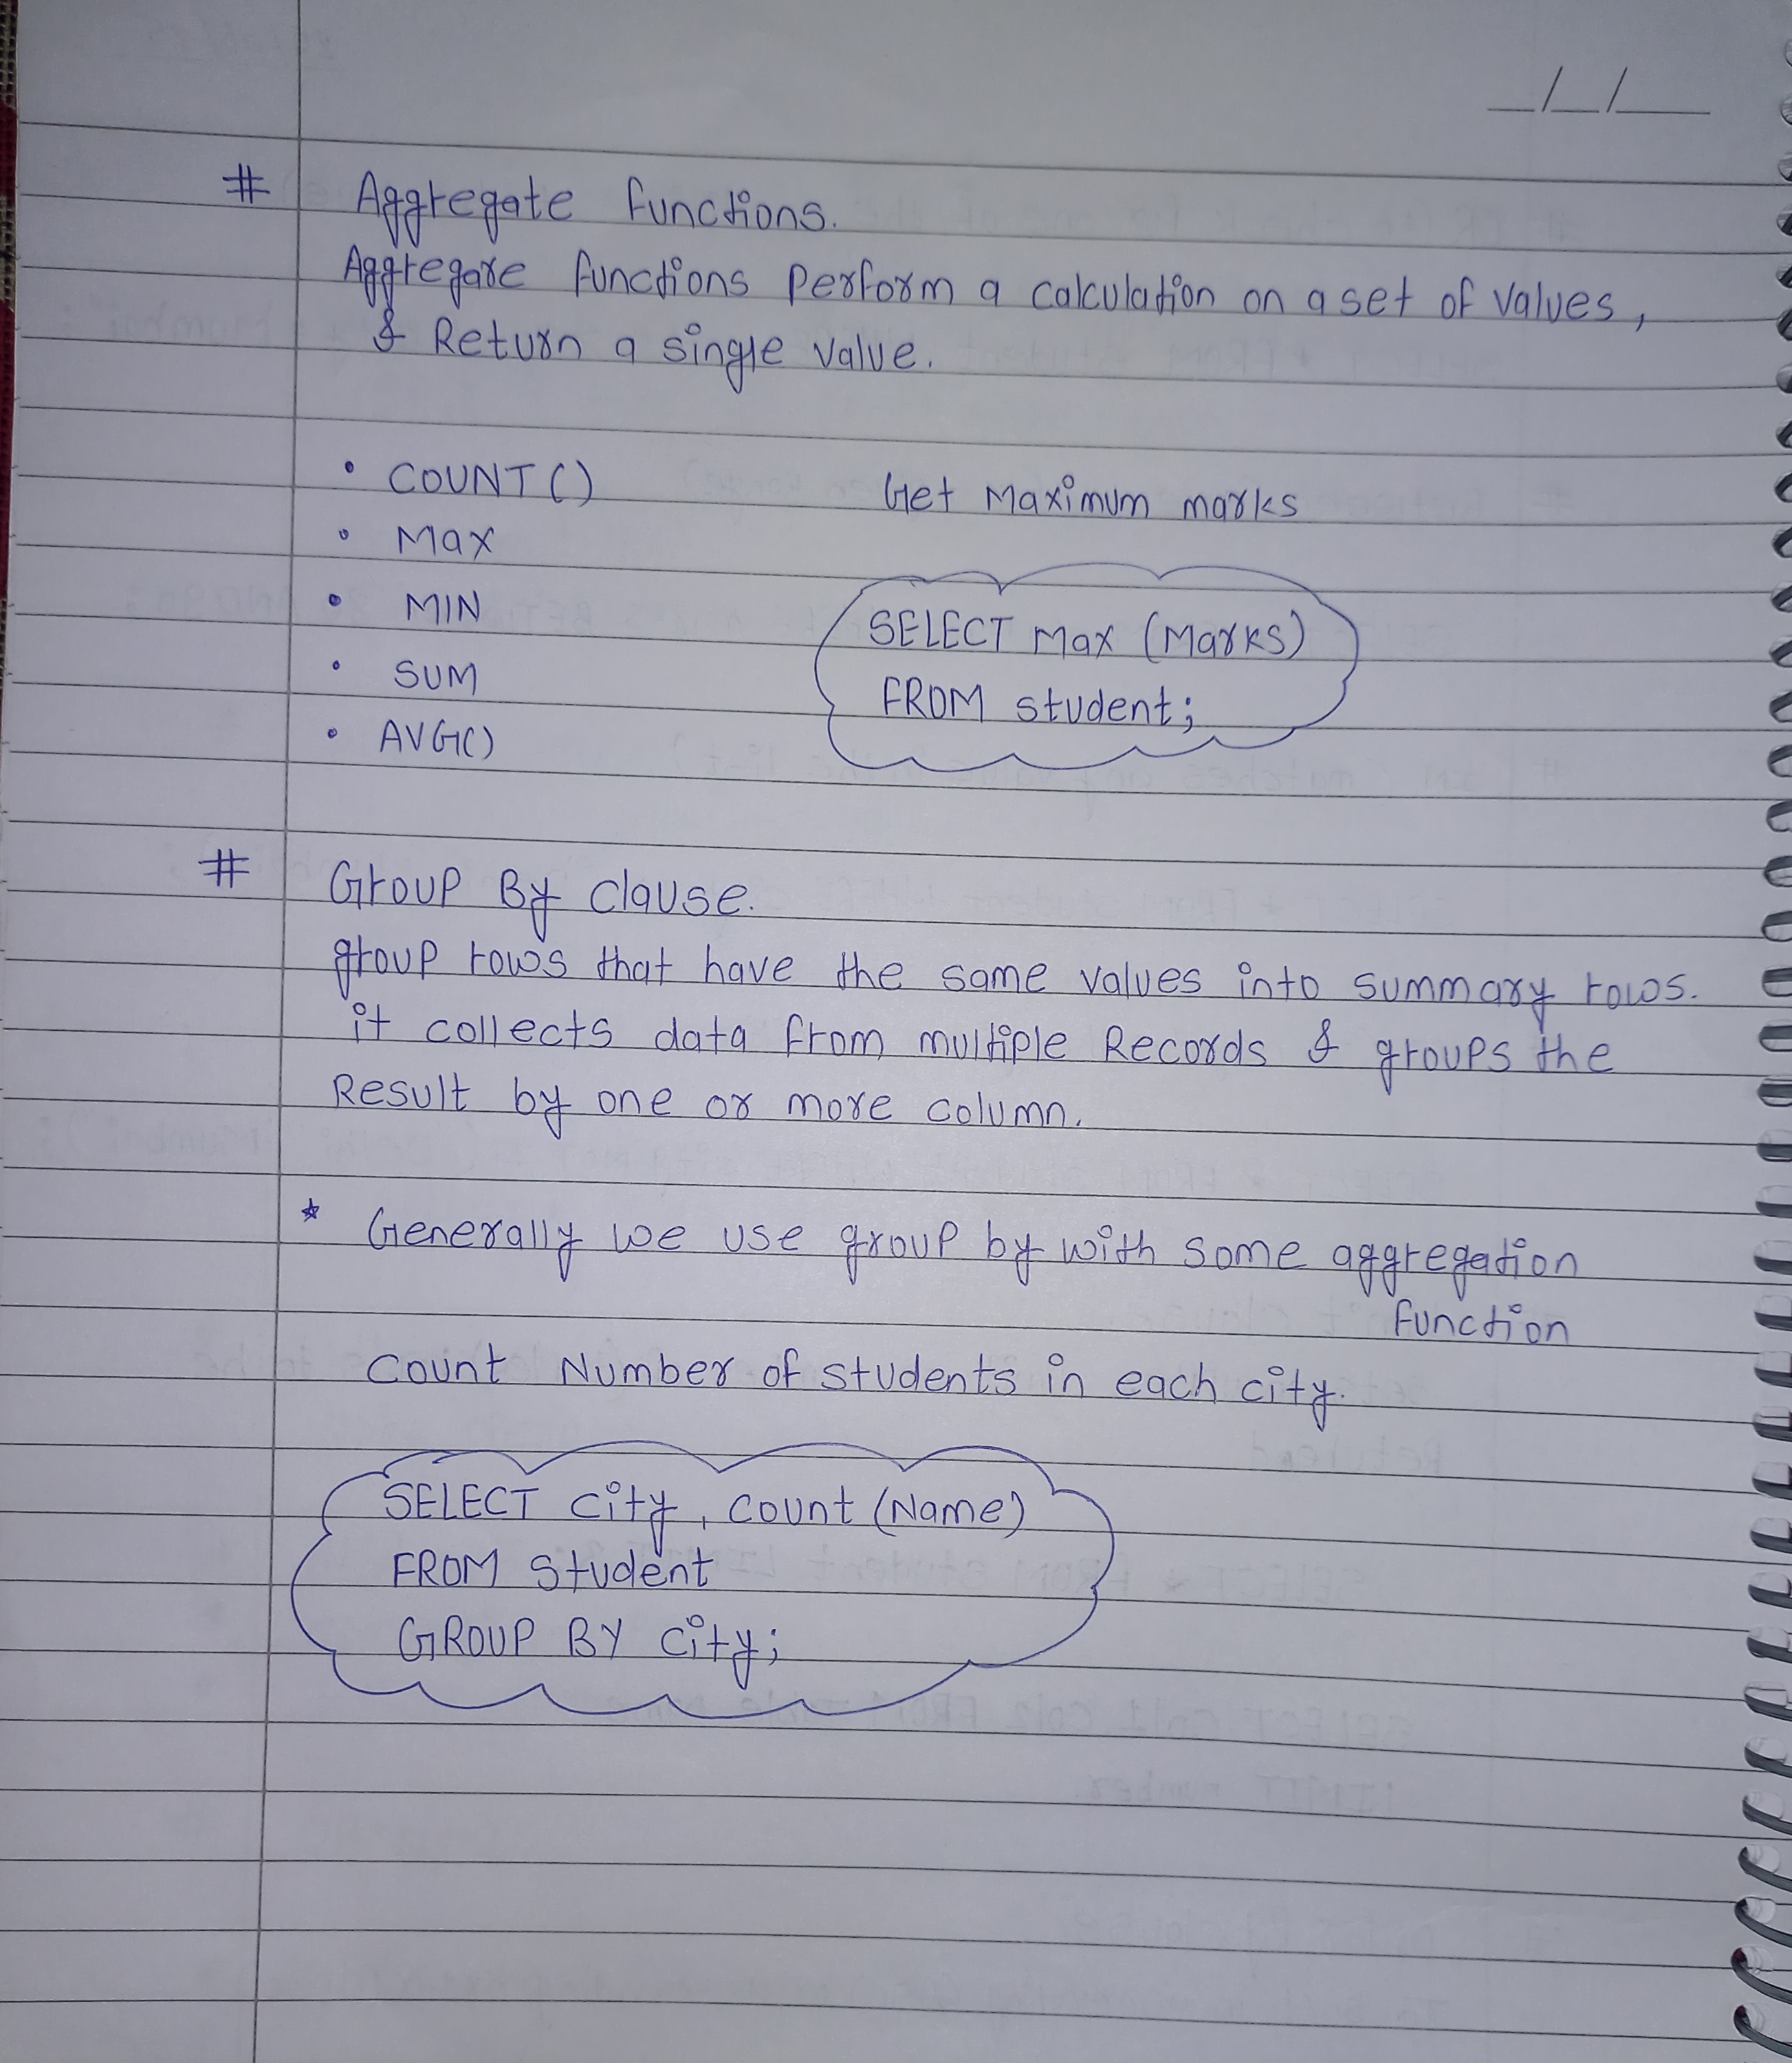 # Aggregate functions.
Aggregate functions perform a calculation on a set of values,
& Return a single value.
• COUNT()
Get Maximum marks
• Max
• MIN
SELECT Max (Marks)
• SUM
FROM student;
• AVG()
# Group By clause.
group rows that have the same values into summary rows.
it collects data from multiple Records & groups the
Result by one or more column.
* Generally we use group by with some aggregation
function
Count Number of students in each city.
SELECT city, count (Name)
FROM student
GROUP BY city;